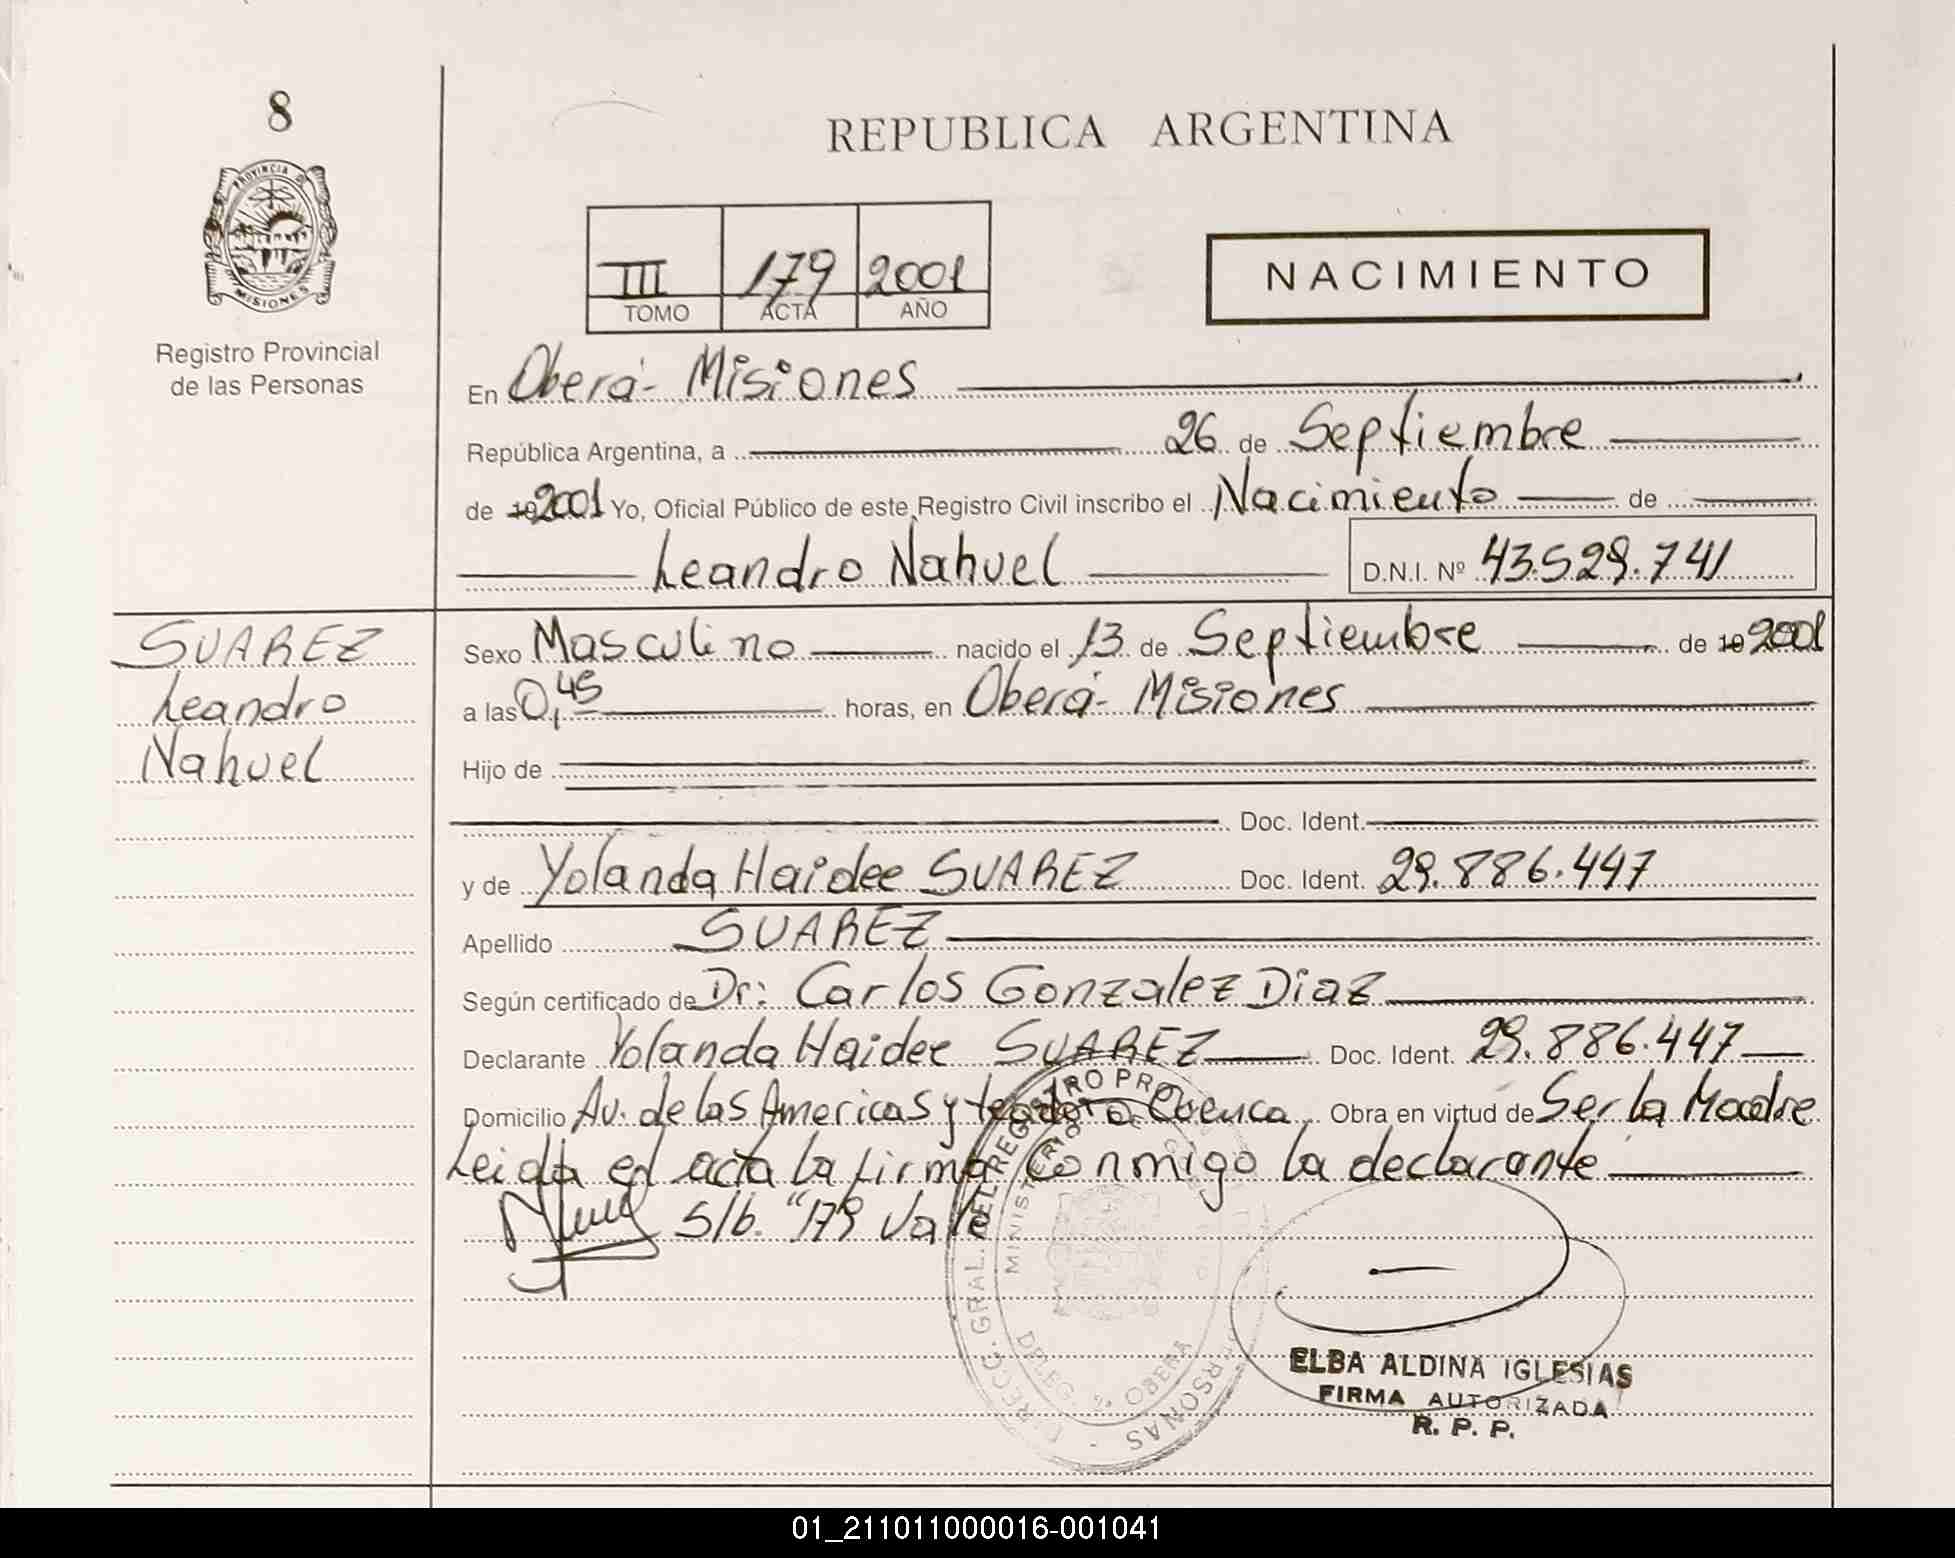 8
PROVINCIA DE
MISIONES
Registro Provincial
de las Personas
REPUBLICA ARGENTINA
III 179 2001
TOMO ACTA AÑO
NACIMIENTO
En Oberá - Misiones
República Argentina, a 26 de Septiembre
de 19 2001 Yo, Oficial Público de este Registro Civil inscribo el Nacimiento de
Leandro Nahuel D.N.I. Nº 43.529.741
SUAREZ
Leandro
Nahuel
Sexo Masculino nacido el 13 de Septiembre de 19 2001
a las 0,45 horas, en Oberá - Misiones
Hijo de
Doc. Ident.
y de Yolanda Haidee SUAREZ Doc. Ident. 29.886.447
Apellido SUAREZ
Según certificado de Dr: Carlos Gonzalez Diaz
Declarante Yolanda Haidee SUAREZ Doc. Ident. 29.886.447
Domicilio Av. de las Americas y Cuenca Obra en virtud de Ser la Madre
Leida el acta la firma Conmigo la declarante
S/b. "179 Vale
DIRECC. GRAL. DEL REGISTRO PROV PERSONAS
MINISTERIO DE
DELEG. 2ª OBERA
ELBA ALDINA IGLESIAS
FIRMA AUTORIZADA
R. P. P.
01_211011000016-001041